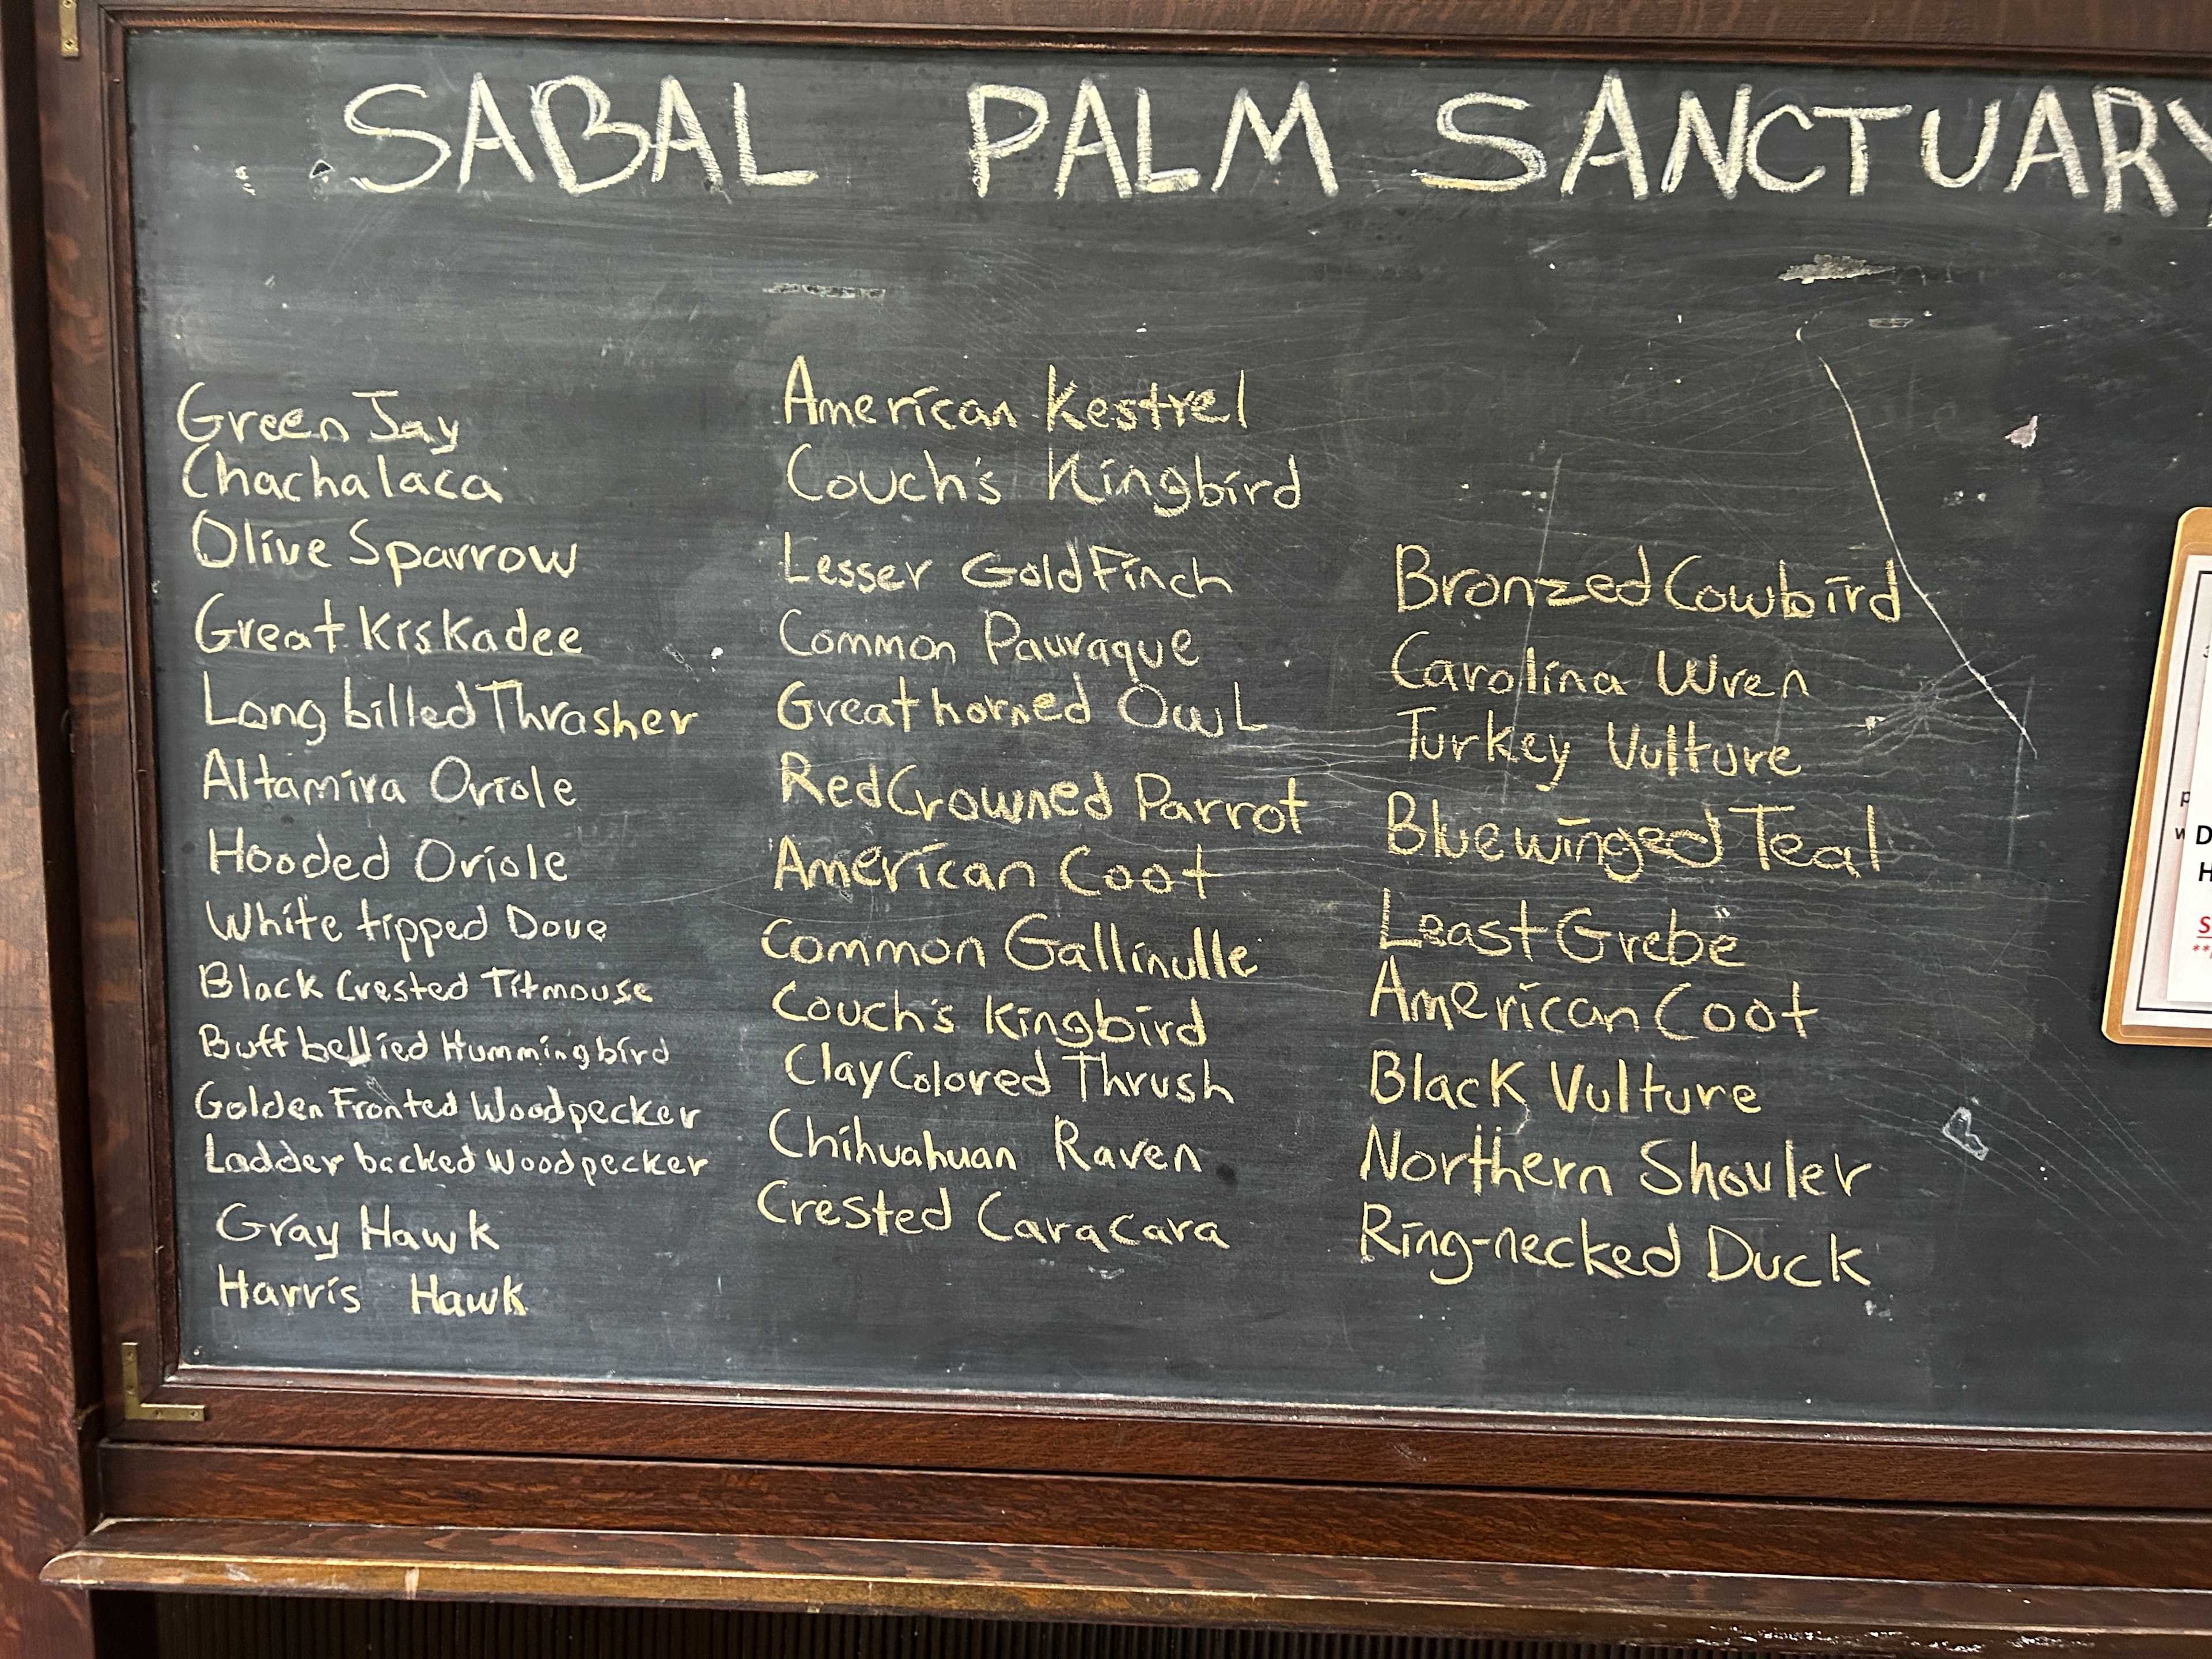 SABAL PALM SANCTUARY
Green Jay
Chachalaca
Olive Sparrow
Great Kiskadee
Long billed Thrasher
Altamira Oriole
Hooded Oriole
White tipped Dove
Black Crested Titmouse
Buff bellied Hummingbird
Golden Fronted Woodpecker
Ladder backed Woodpecker
Gray Hawk
Harris Hawk
American Kestrel
Couch's Kingbird
Lesser GoldFinch
Common Pauraque
Great horned Owl
Red Crowned Parrot
American Coot
Common Gallinulle
Couch's Kingbird
Clay Colored Thrush
Chihuahuan Raven
Crested Caracara
Bronzed Cowbird
Carolina Wren
Turkey Vulture
Blue winged Teal
Least Grebe
American Coot
Black Vulture
Northern Shouler
Ring-necked Duck